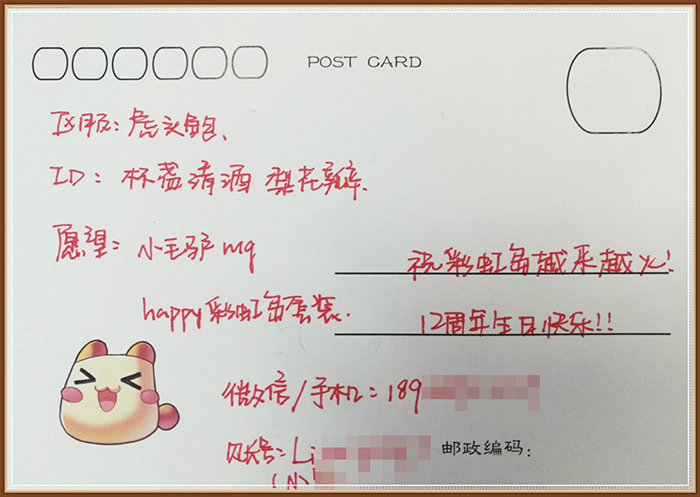 POST CARD
区服:虎头鲍、
ID:杯莶清酒 梨花瓣
愿望:小毛驴mq
祝彩虹岛越来越火!
happy彩虹岛套装.
12周年生日快乐!!
微信/手机:189
号:Li
邮政编码:
(小)